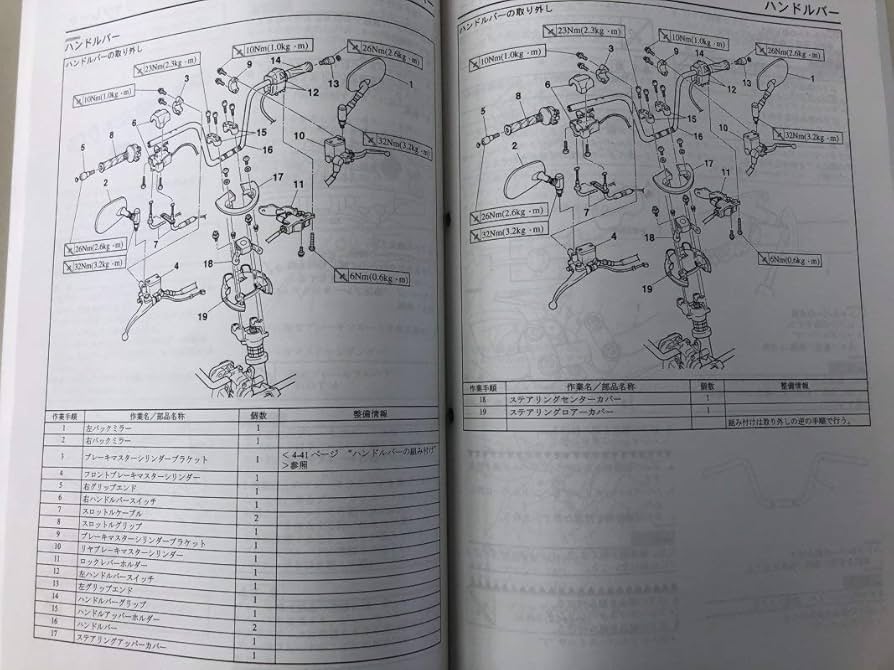 ハンドルバー
ハンドルバーの取り外し
10Nm(1.0kg・m)
26Nm(2.6kg・m)
23Nm(2.3kg・m)
10Nm(1.0kg・m)
32Nm(3.2kg・m)
26Nm(2.6kg・m)
32Nm(3.2kg・m)
6Nm(0.6kg・m)
1
2
3
4
5
6
7
8
9
10
11
12
13
14
15
16
17
18
19
作業手順 作業名/部品名称 個数 整備情報
1 左バックミラー 1
2 右バックミラー 1
3 ブレーキマスターシリンダーブラケット 1 <4-41 ページ “ハンドルバーの組み付け”
>参照
4 フロントブレーキマスターシリンダー 1
5 右グリップエンド 1
6 右ハンドルバースイッチ 1
7 スロットルケーブル 2
8 スロットルグリップ 1
9 ブレーキマスターシリンダーブラケット 1
10 リヤブレーキマスターシリンダー 1
11 ロックレバーホルダー 1
12 左ハンドルバースイッチ 1
13 左グリップエンド 1
14 ハンドルバーグリップ 1
15 ハンドルアッパーホルダー 2
16 ハンドルバー 1
17 ステアリングアッパーカバー 1
ハンドルバー
ハンドルバーの取り外し
10Nm(1.0kg・m)
26Nm(2.6kg・m)
23Nm(2.3kg・m)
10Nm(1.0kg・m)
32Nm(3.2kg・m)
26Nm(2.6kg・m)
32Nm(3.2kg・m)
6Nm(0.6kg・m)
1
2
3
4
5
6
7
8
9
10
11
12
13
14
15
16
17
18
19
作業手順 作業名/部品名称 個数 整備情報
18 ステアリングセンターカバー 1
19 ステアリングロアーカバー 1
組み付けは取り外しの逆の手順で行う。